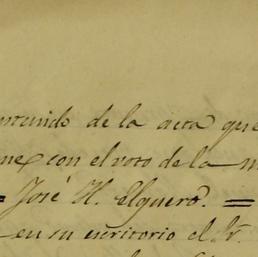 de la acta que
con el voto de la
= José H. Elguero. =
en su escritorio el Sr.